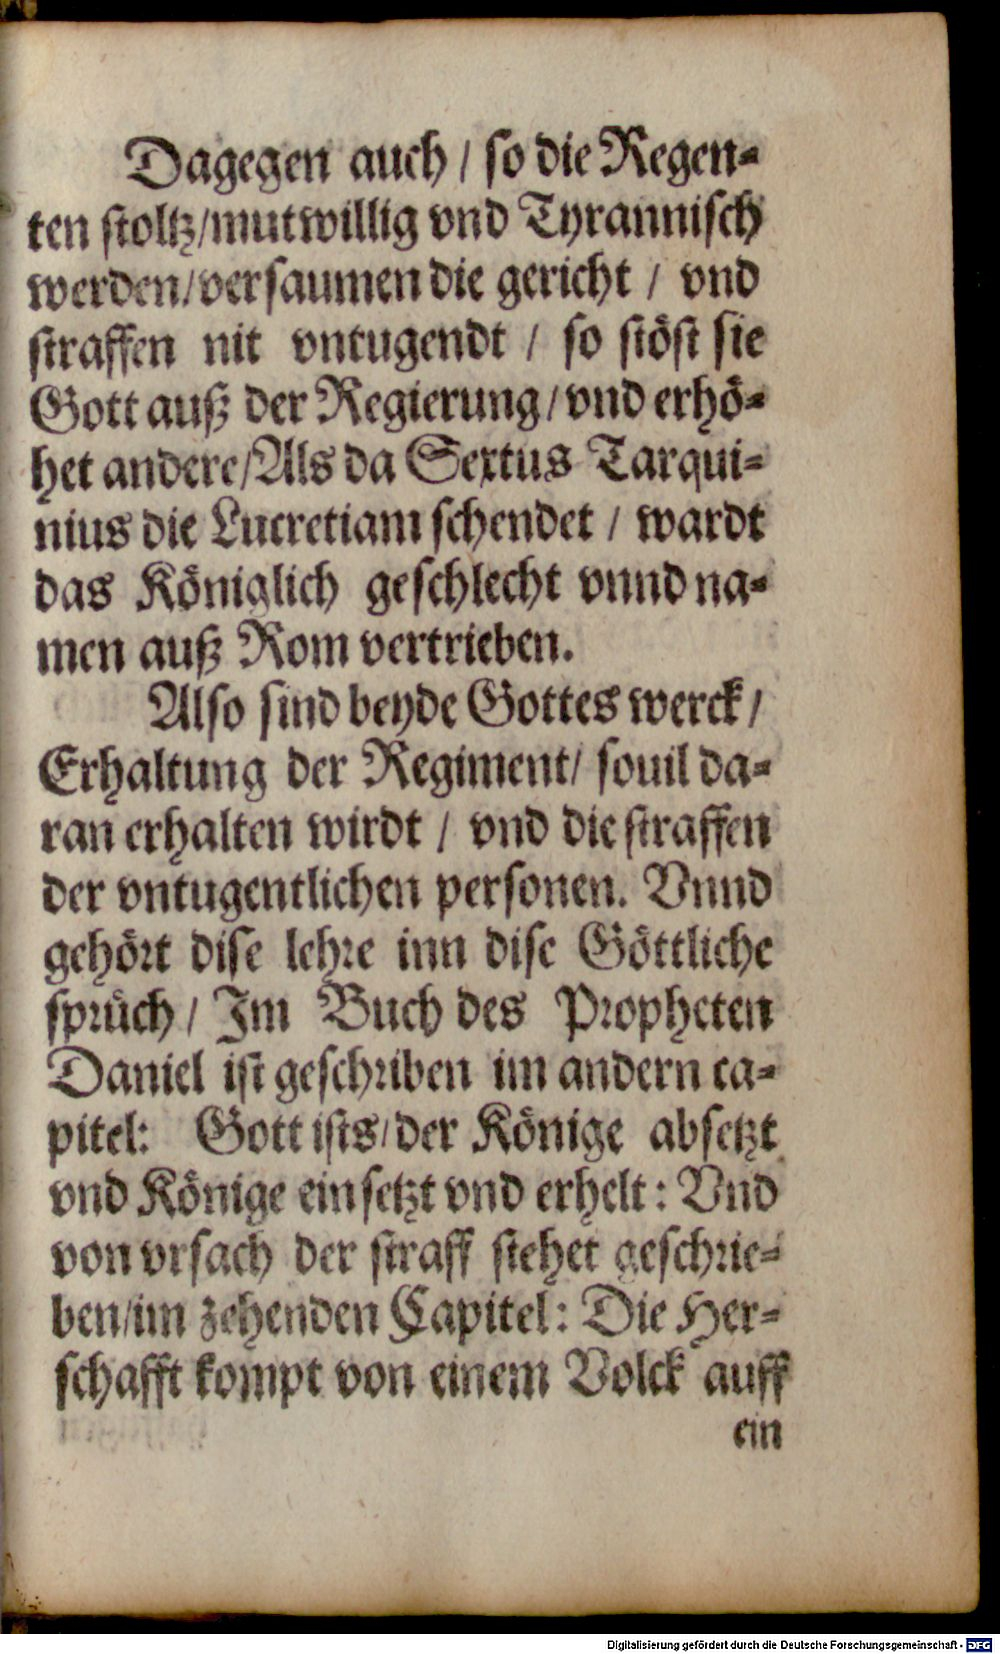 Dagegen auch / so die Regen-
ten stoltz/mutwillig vnd Tyrannisch
werden/versaumen die gericht / vnd
straffen nit vntugendt / so stöst sie
Gott auß der Regierung/vnd erhö-
het andere/Als da Sextus Tarqui-
nius die Lucretiam schendet / wardt
das Königlich geschlecht vnnd na-
men auß Rom vertrieben.
Also sind beyde Gottes werck/
Erhaltung der Regiment/ souil da-
ran erhalten wirdt / vnd die straffen
der vntugentlichen personen. Vnnd
gehört dise lehre inn dise Göttliche
sprüch/ Im Buch des Propheten
Daniel ist geschriben im andern ca-
pitel: Gott ists/der Könige absetzt
vnd Könige einsetzt vnd erhelt: Vnd
von vrsach der straff stehet geschrie-
ben/im zehenden Capitel: Die Her-
schafft kompt von einem Volck auff
ein
Digitalisierung gefördert durch die Deutsche Forschungsgemeinschaft - DFG